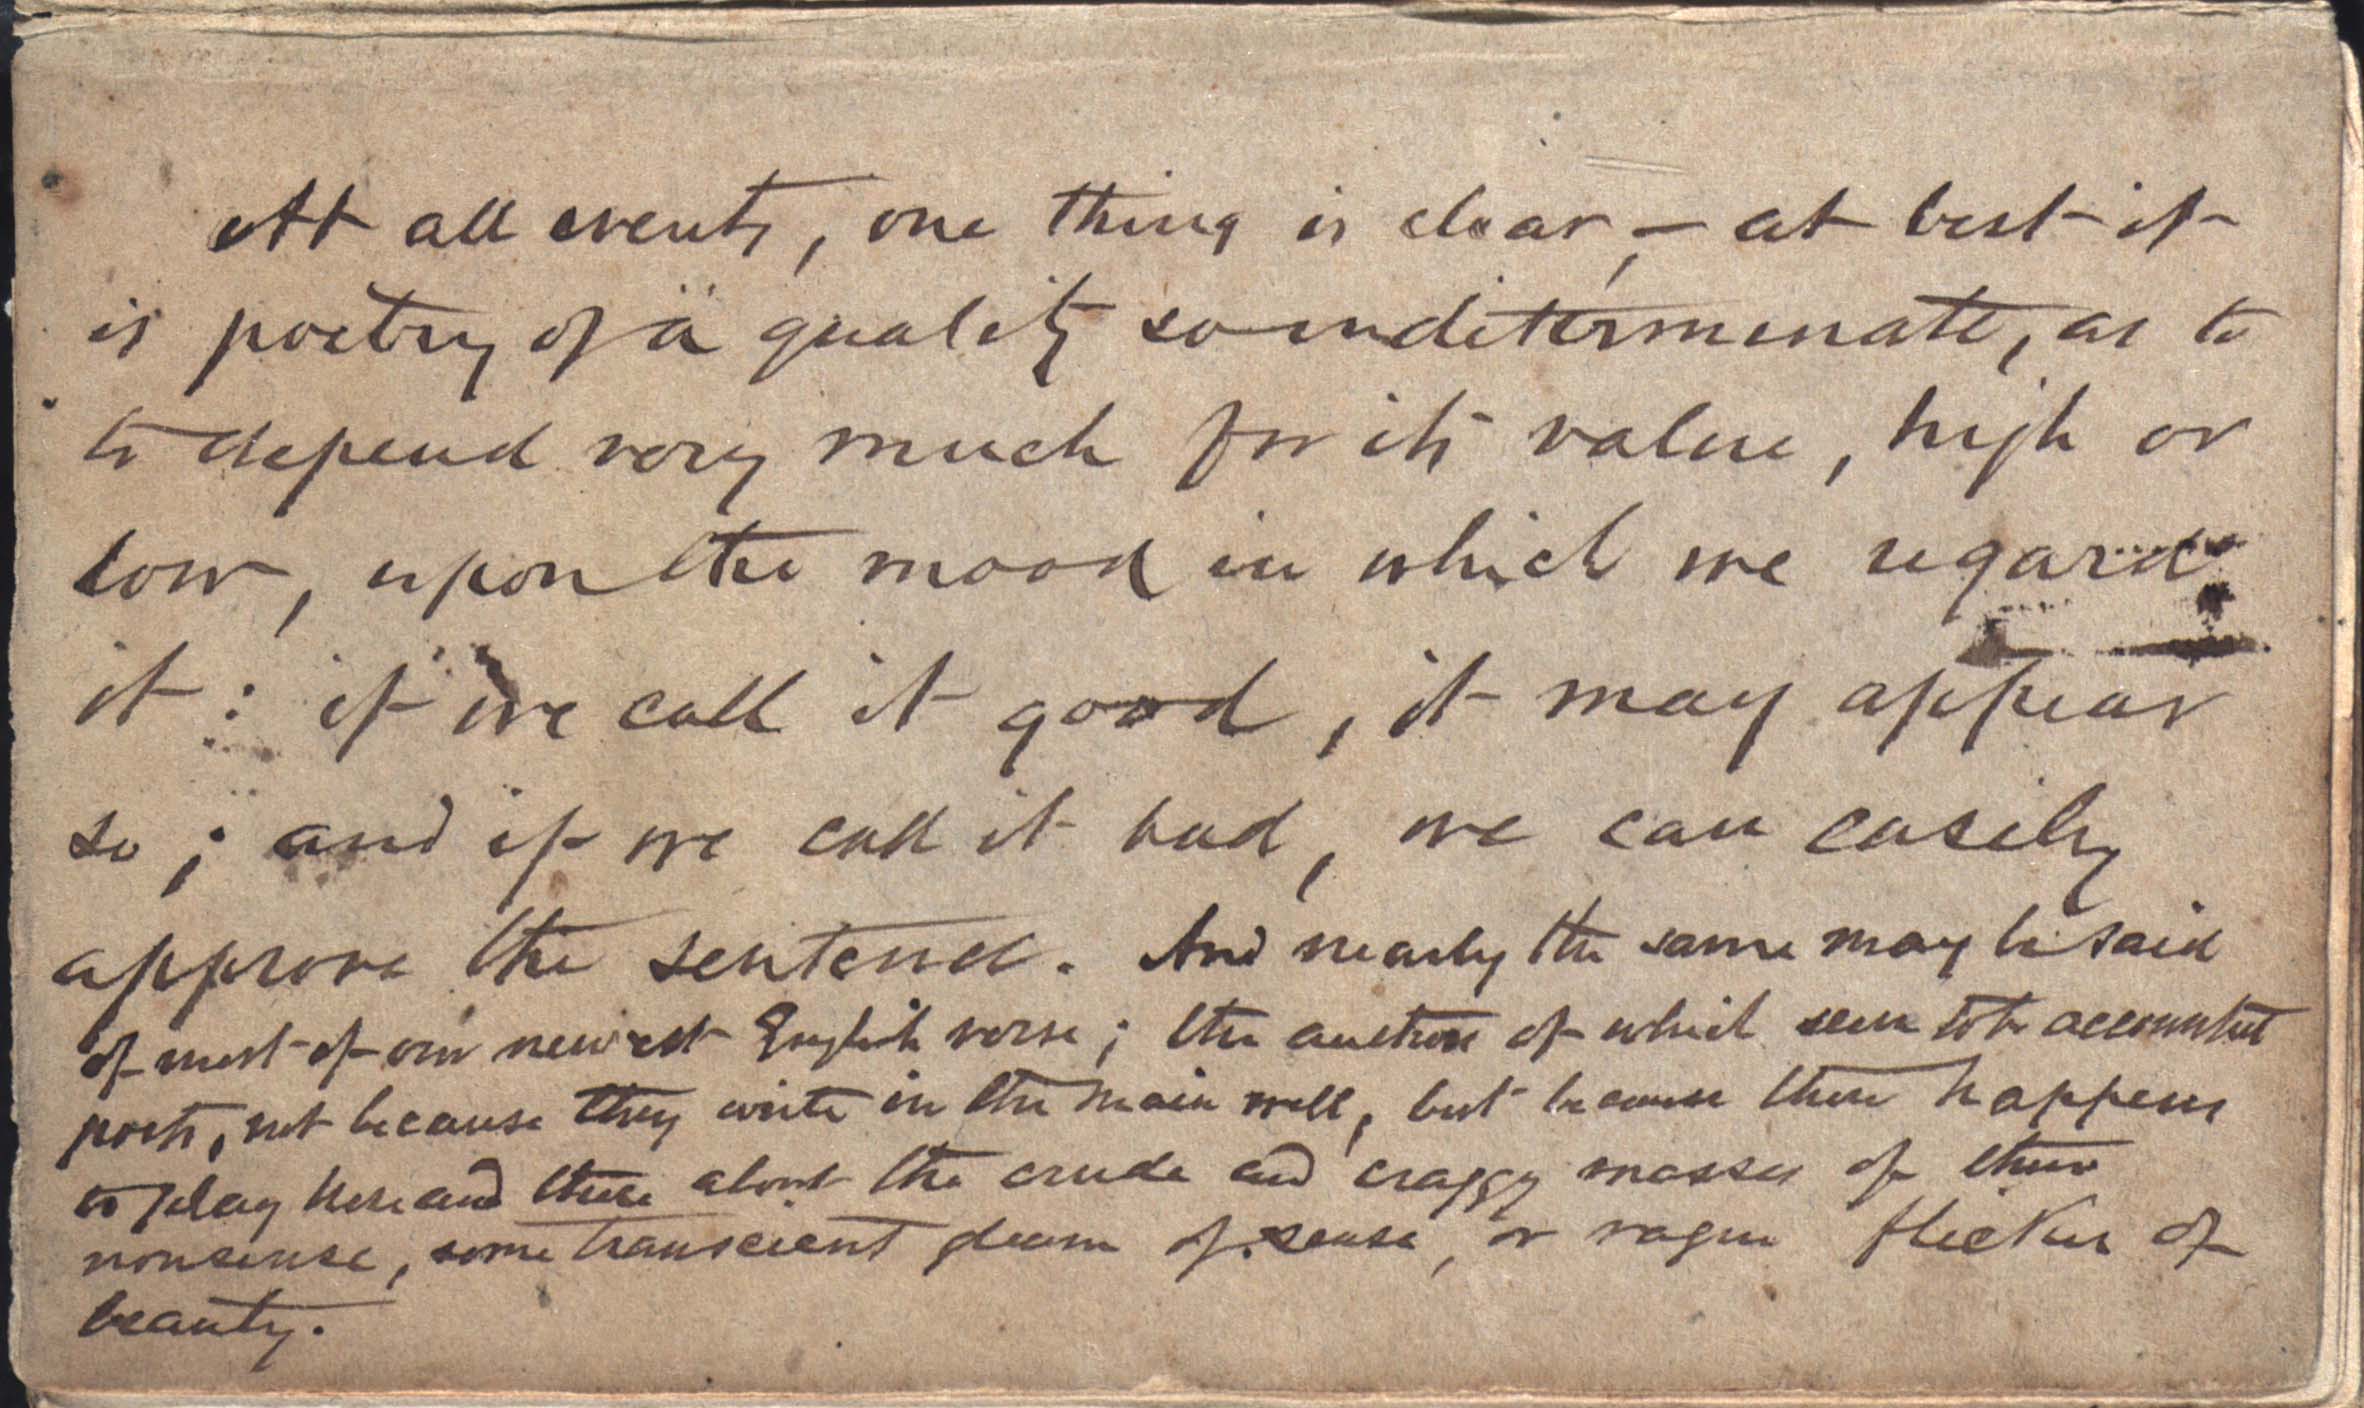 At all events, one thing is clear, — at best it
is poetry of a quality so indeterminate, as to
to depend very much for its value, high or
low, upon the mood in which we regard
it : if we call it good, it may appear
so ; and if we call it bad, we can easily
approve the sentence. And nearly the same may be said
of most of our newest English verse ; the authors of which seem to be accounted
poets, not because they write in the main well, but because there happens
to play here and there about the crude and craggy masses of their
nonsense, some transcient gleam of sense, or vague flicker of
beauty.